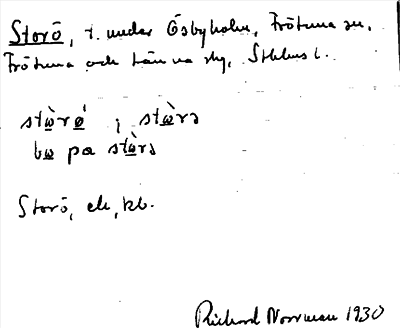 Storö, t. under Ösbyholm, Frötuna sn,
Frötuna och Länna skg, Sthlms l.
stὼrǿ ; stὼrə
bω pα stὼrə
Storö, ek, kb.
Richard Norrman 1930